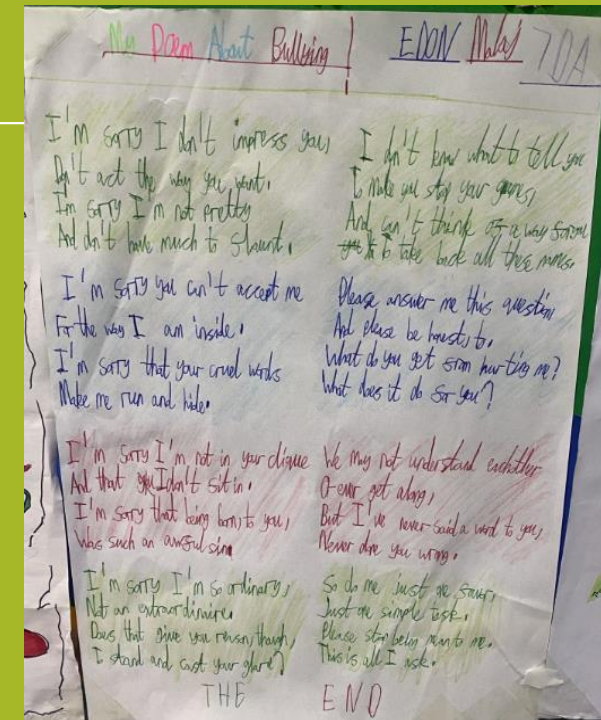 My Poem About Bullying!
EDON Malaj
7DA
I'm sorry I don't impress you,
Don't act the way you want.
I'm sorry I'm not pretty
And don't have much to flaunt.
I'm sorry you can't accept me
For the way I am inside.
I'm sorry that your cruel words
Make me run and hide.
I'm sorry I'm not in your clique
And that I don't fit in.
I'm sorry that being born, to you,
Was such an awful sin
I'm sorry I'm so ordinary,
Not an extraordinaire.
Does that give you reason, though,
I stand and cast your glare?
I don't know what to tell you
To make you stop your games,
And can't think of a way for you
to take back all these names.
Please answer me this question
And please be honest, to.
What do you get from hurting me?
What does it do for you?
We may not understand eachother
O ever get along,
But I've never said a word to you,
Never done you wrong.
So do me just one favor,
Just one simple task.
Please stop being mean to me.
This is all I ask.
THE END